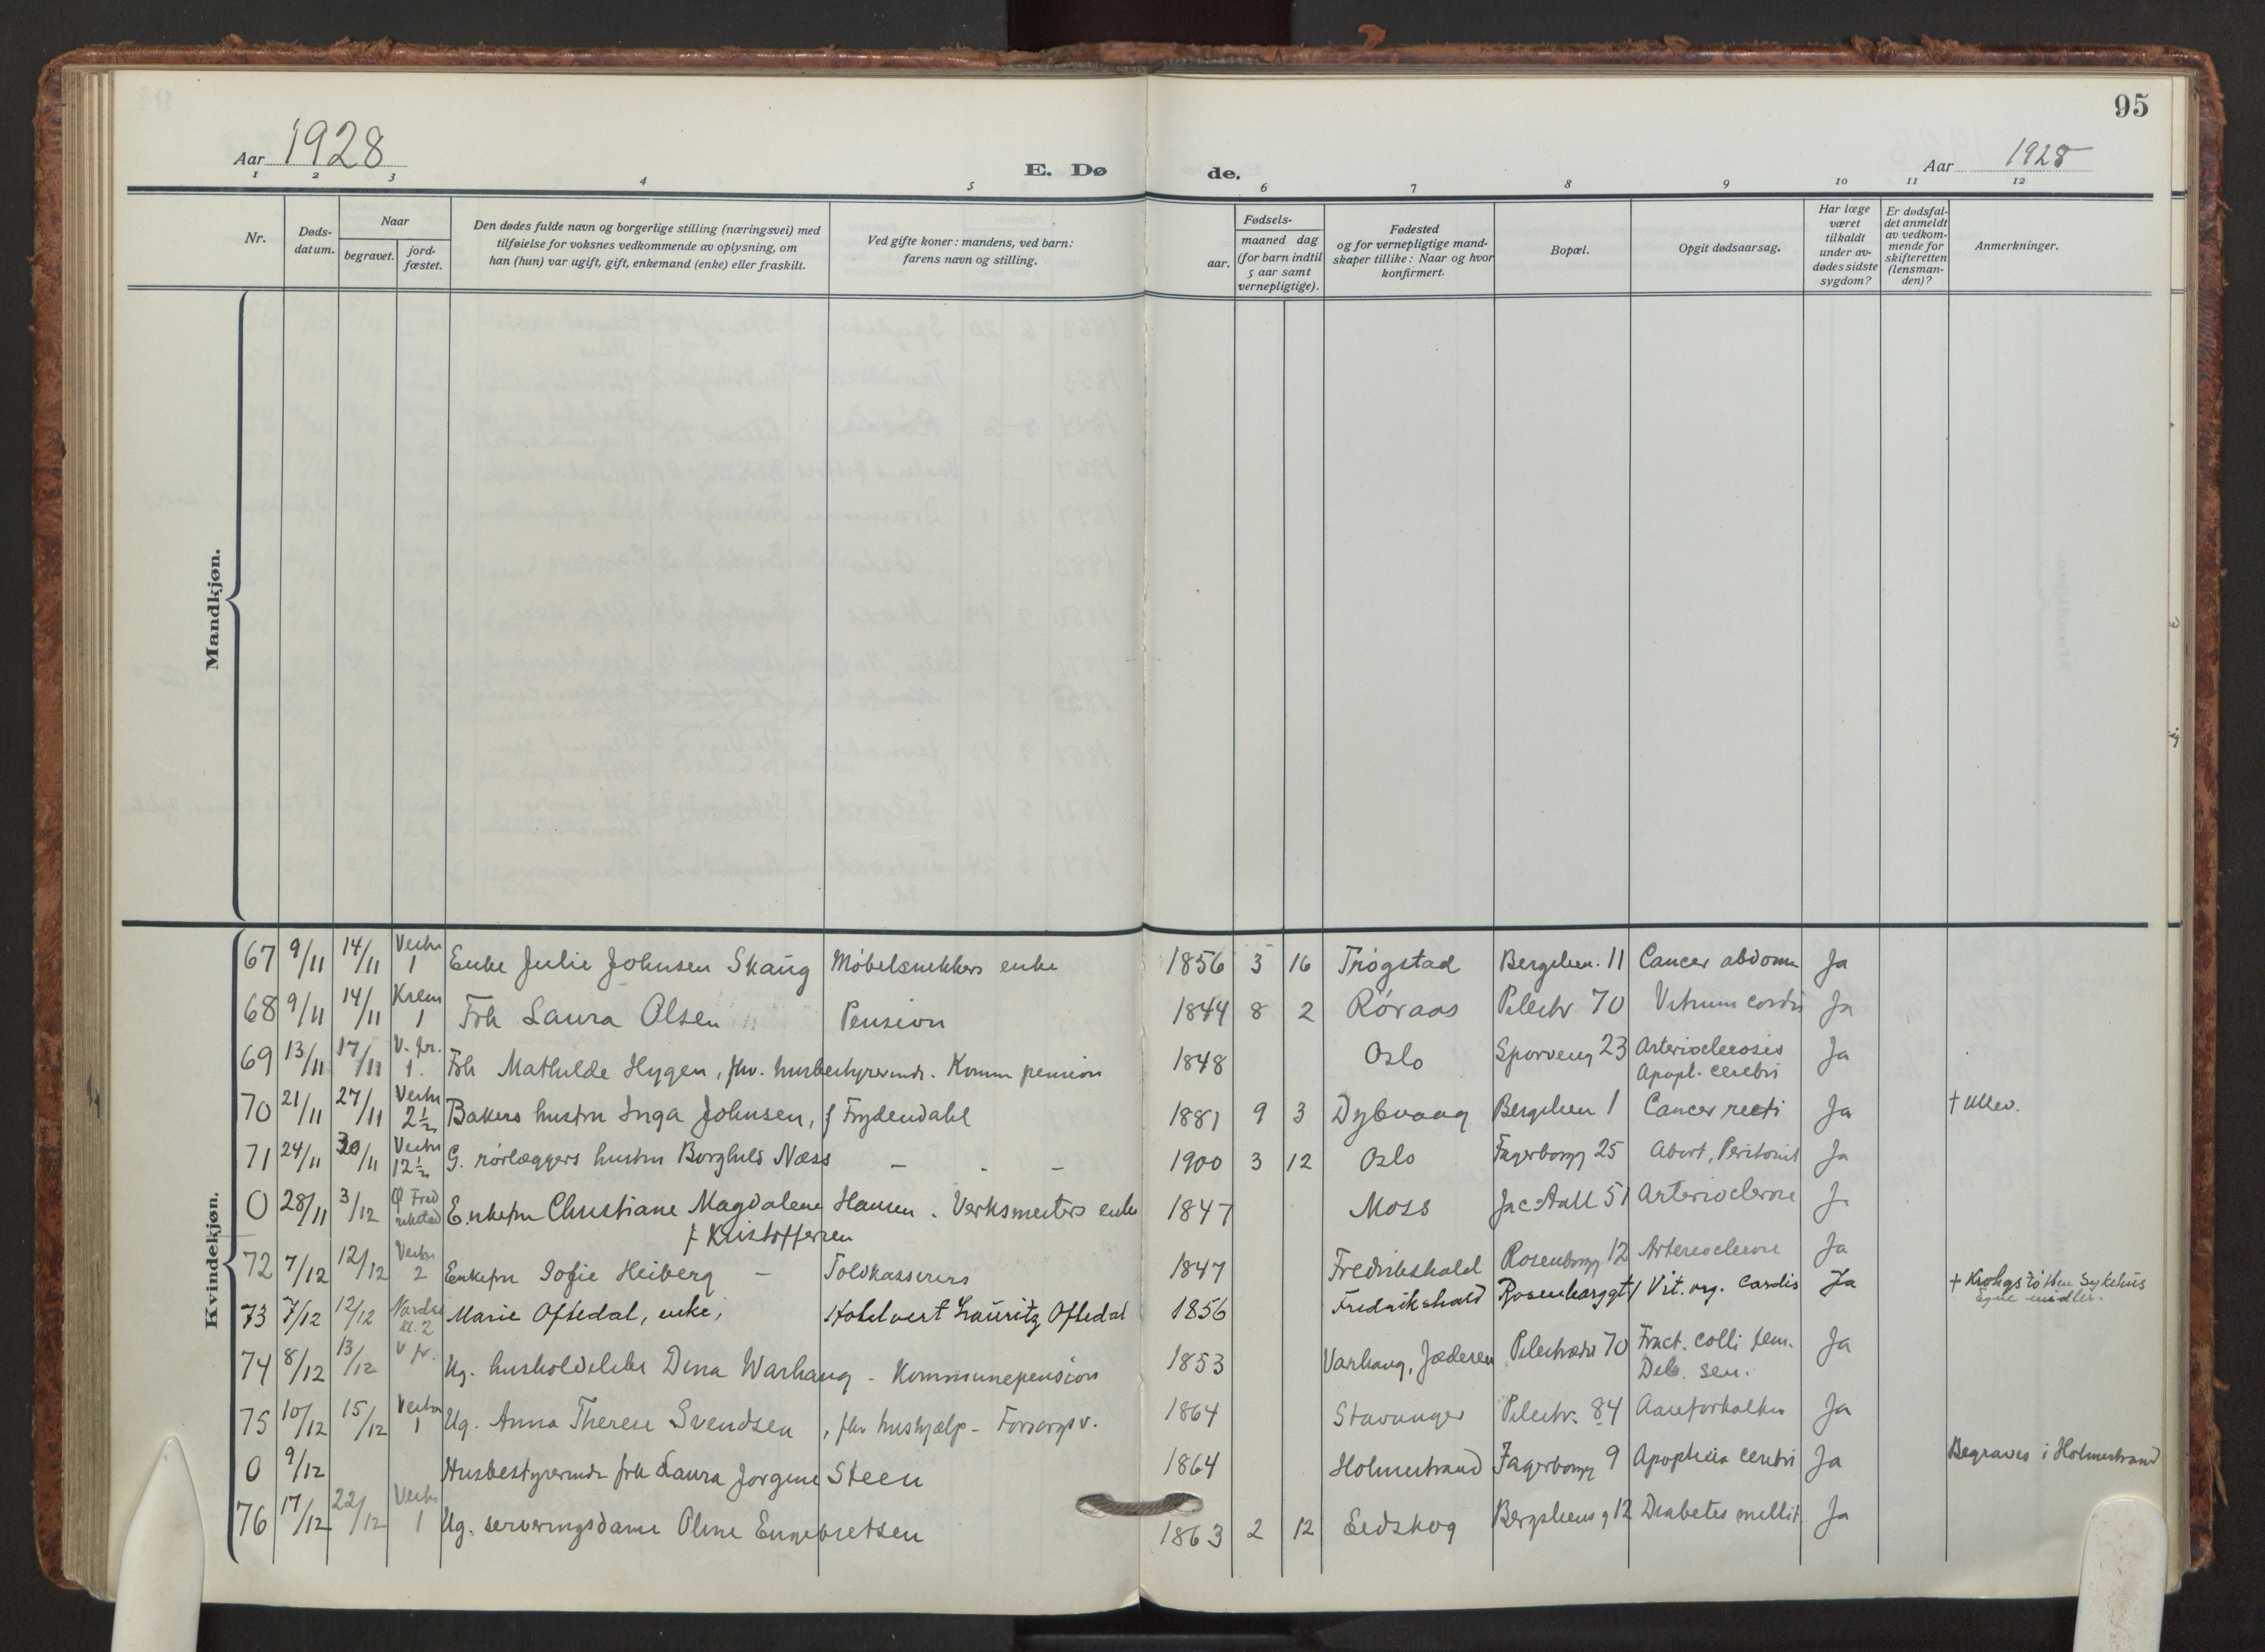 95
Aar 1928
E. Døde.
Aar 1928
1 2 3 4 5 6 7 8 9 10 11 12
Nr.
Døds-
datum.
Naar
begravet.
jord-
fæstet.
Den dødes fulde navn og borgerlige stilling (næringsvei) med
tilføielse for voksnes vedkommende av oplysning, om
han (hun) var ugift, gift, enkemand (enke) eller fraskilt.
Ved gifte koner: mandens, ved barn:
farens navn og stilling.
Fødsels-
aar.
maaned dag
(for barn indtil
5 aar samt
vernepligtige).
Fødested
og for vernepligtige mand-
skaper tillike: Naar og hvor
konfirmert.
Bopæl.
Opgit dødsaarsag.
Har læge
været
tilkaldt
under av-
dødes sidste
sygdom?
Er dødsfal-
det anmeldt
av vedkom-
mende for
skifteretten
(lensman-
den)?
Anmerkninger.
Mandkjøn.
Kvindekjøn.
67 9/11 14/11 Vestre 1 Enke Julie Johnsen Skaug Møbelsnekkers enke 1856 3 16 Trøgstad Bergslien. 11 Cancer abdom Ja
68 9/11 14/11 Krem 1 Frk Laura Olsen Pension 1844 8 2 Røraas Pilestr 70 Vitium cordis Ja
69 13/11 17/11 V. fr. 1. Frk Mathilde Hygen, fhv. husbestyrerinde. Komm pension 1848 Oslo Sporveisg 23 Arteriosclerosis Ja
Apopl. cerebri
70 21/11 27/11 Vestre 2½ Bakers hustru Inga Johnsen, f Frydendahl 1881 9 3 Dybvaag Bergslien 1 Cancer recti Ja † Ullev.
71 24/11 30/11 Vestre 12½ G. rørlæggers hustru Borghild Næss – - – 1900 3 12 Oslo Fagerborgg 25 Abort, Peritonit Ja
0 28/11 3/12 Ø Fredrikstad Enkefru Christiane Magdalene Hansen. Verksmesters enke 1847 Moss Jac Aall 51 Arteriosclerose Ja
f Kristoffersen
72 7/12 12/12 Vestre 2 Enkefru Sofie Heiberg – Toldkasserers 1847 Fredrikshald Rosenborgg 12 Arteriosclerose Ja
73 7/12 12/12 Nordre kl. 2 Marie Oftedal, enke, Hotelvert Lauritz Oftedal 1856 Fredrikshald Rosenborggt 1 Vit. org. cardis Ja † Krohgstøtten Sykehus
Egne midler.
74 8/12 13/12 V fr. Ug. husholderske Dina Warhaug - Kommunepension 1853 Varhaug, Jæderen Pilestrædet 70 Fract. colli fem. Ja
Deb. sen.
75 10/12 15/12 Vestre 1 Ug. Anna Therese Svendsen, fhv hushjælp - Forsorgsv. 1864 Stavanger Pilestr. 84 Aareforkalkn Ja
0 9/12 Husbestyrerinde frk Laura Jørgine Steen 1864 Holmestrand Fagerborgg 9 Apoplexia cerebri Ja Begraves i Holmestrand
76 17/12 22/12 Vestre 1 Ug. serveringsdame Oline Engebretsen 1863 2 12 Eidskog Bergsliens g 12 Diabetes mellit Ja